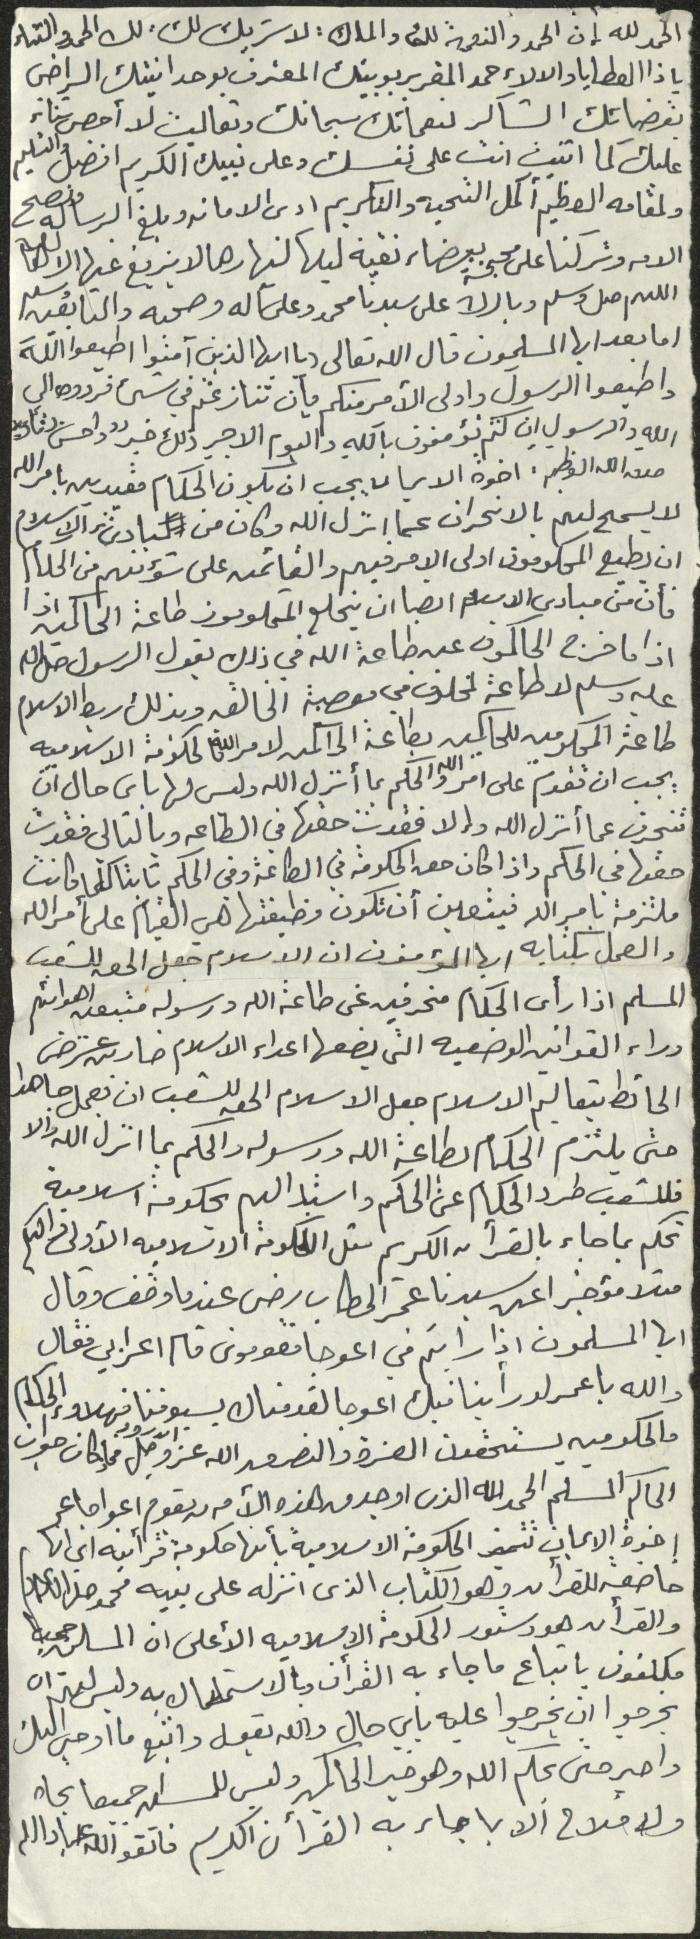 الحمد لله إن الحمد والنعمة لك والملك : لا شريك لك : لك الحمد والثناء
يا ذا العطايا والالاء حمد المقر بربوبيتك المعترف بوحدانيتك الراضى
بقضائك الشاكر لنعمائك سبحانك وتعاليت لا أحصى ثناء
عليك كما اثنيت انت على نفسك وعلى نبيك الكريم افضل والتسليم
ولمقامه العظيم أكمل التحيه والتكريم ادى الامانه وبلغ الرساله ونصح
الامه وتركنا على محجة بيضاء نقية ليلها كنهارها لا يزيغ عنها الا
اللهم صل وسلم وبارك على سيدنا محمد وعلى آله وصحبه والتابعين
اما بعد ايها المسلمون قال الله تعالى (يا ايها الذين آمنوا اطيعوا الله
واطيعوا الرسول واولى الأمر منكم فأن تنازعتم في شئ فردوه الى
الله والرسول ان كنتم تؤمنون بالله واليوم الاخر ذلك خير واحسن تأويلا
صدق الله العظيم : اخوة الايمان يجب ان يكون الحكام مقيدين بامر الله
لا يسمح لهم بالانحراف عما انزل الله وكان من مبادئ الاسلام
ان يطيع المحكومون اولى الامر فيهم والقائمين على شؤنهم من الحكام
فأن من مبادئ الاسلام ايضا ان يخلع المحكومون طاعة الحاكمين اذا
اذا ما خرج الحاكمون عن طاعة الله في ذلك يقول الرسول صلى الله
عليه وسلم لا طاعة لمخلوق في معصية الخالق وبذلك ربط الاسلام
طاعة المحكومين للحاكمين بطاعة الحاكمين لامر الله فالحكومة الاسلاميه
يجب ان تقوم على امر الله والحكم بما أنزل الله وليس لها باى حال ان
تنحرف عما أنزل الله والا فقدت حقها فى الطاعه وبالتالى فقدت
حقها في الحكم واذا كان حق الحكومة في الطاعة وفى الحكم ثابتا لها كانت
ملتزمة بامر الله فيتعين أن تكون وظيفتها هى القيام على أمر الله
والعمل بكتابه ايها المؤمنون ان الاسلام جعل الحق للشعب
المسلم اذا رأى الحكام منحرفين عن طاعة الله ورسوله متبعين اهوائهم
وراء القوانين الوضعيه التى يضعها اعداء الاسلام ضاربين عرض
الحائط بتعاليم الاسلام جعل الاسلام الحق للشعب ان يعمل جاهدا
حتى يلتزم الحكام بطاعة الله ورسوله والحكم بما انزل الله والا
فللشعب طرد الحكام عن الحكم واستبدالهم بحكومة اسلامية
تحكم بما جاء بالقرآن الكريم مثل الحكومة الاسلاميه الأولى
مثلا مؤخرا عن سيدنا عمر الخطاب رضى عندما وقف وقال
ايها المسلمون اذا رايتم في اعوجا فقومونى قام اعرابي فقال
والله يا عمر لو رأينا فيك اعوجا لقومناك بسيوفنا فهلاوء الحاكم
والحكومين يستحقون العزة والنصر من الله عز وجل فما كان جواب
الحاكم المسلم الحمد لله الذى اوجد من هذه الأمه من يقوم اعوجا عمر
إخوة الايمان تتميز الحكومة الاسلامية بأنها حكومة قرآنيه اى انها
خاضعة للقرآن وهو الكتاب الذى انزله على نبيه محمد
والقرآن هو دستور الحكومة الاسلاميه الأعلى ان المسلمين جميعا
مكلفون باتباع ما جاء به القرآن وبالاستمساك به وليس لهم ان
يخرجوا ان يخرجوا عليه باى حال والله يقول واتبع ما اوحى اليك
واصبر حتى يحكم الله وهو خير الحاكمين وليس للمسلمين جميعا نجاة
ولا فلاح الا بما جاء به القرآن الكريم فاتقوا الله عباد الله